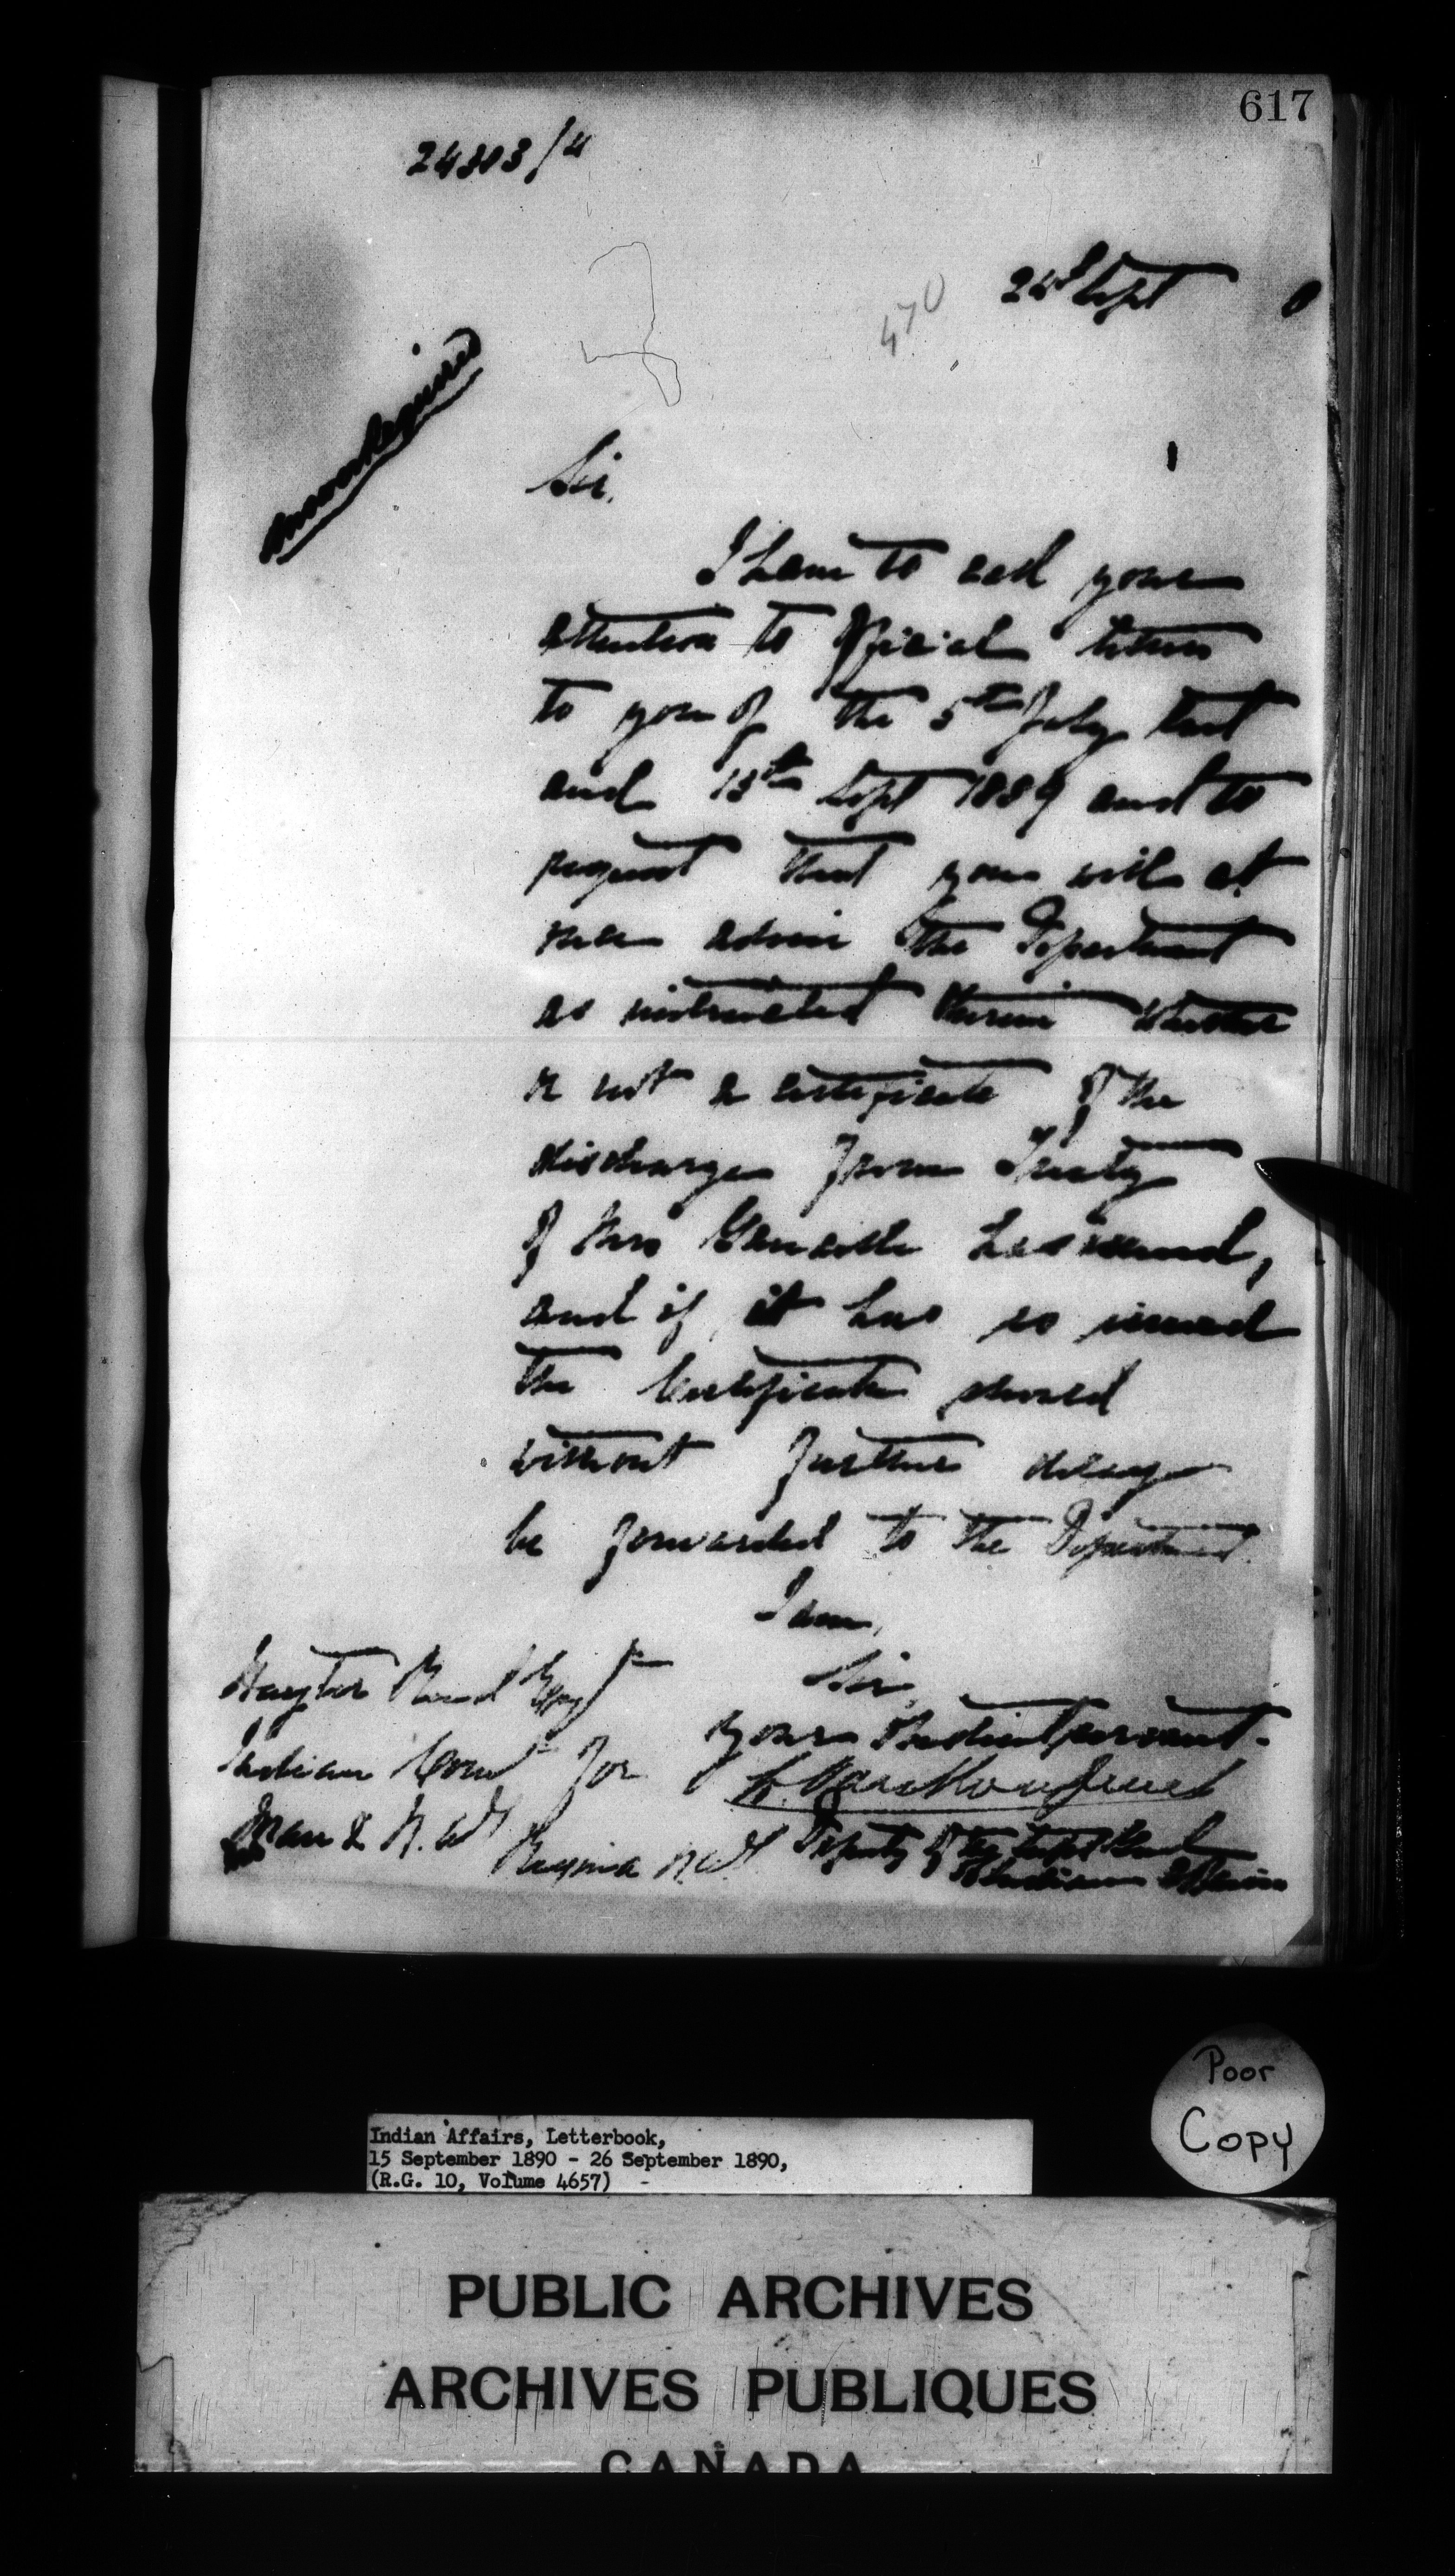 617
24303/4
24th Sept 0
470
Answer Required
Sir,
I have to call your
attention to official letters
to you of the 5th July last
and 13th Sept 1889 and to
request that you will at
once advise the Department
as instructed therein whether
or not a certificate of the
discharge from Treaty
of Mrs has issued,
and if it has so issued
the Certificate should
without further delay
be forwarded to the Department.
I am,
Sir,
Your obedient servant.
L. Vankoughnet
Deputy of the Supt Genl
of Indian Affairs
Hayter Reed Esq
Indian Comr for
Man & N.W.T
Regina N.W.T
Poor
Copy
Indian Affairs, Letterbook,
15 September 1890 - 26 September 1890,
(R.G. 10, Volume 4657) -
PUBLIC ARCHIVES
ARCHIVES PUBLIQUES
CANADA